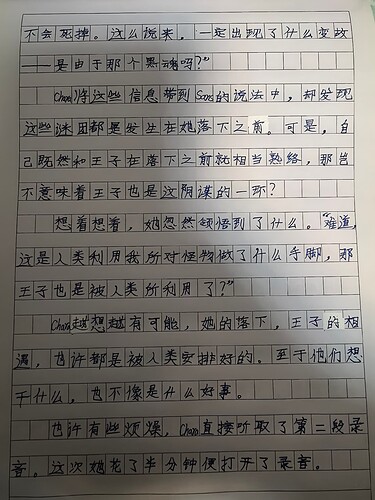 不会死掉。这么说来，一定出现了什么变故
——是由于那个黑魂吗？”
Chara将这些信息带到Sans的说法中，却发现
这些谜团都是发生在她落下之前。可是，自
己既然和王子在落下之前就相当熟络，那岂
不意味着王子也是这阴谋的一环？
想着想着，她忽然领悟到了什么。“难道，
这是人类利用我所对怪物做了什么手脚，那
王子也是被人类所利用了？”
Chara越想越有可能，她的落下，王子的相
遇，也许都是被人类安排好的。至于他们想
干什么。也不像是什么好事。
也许有些烦燥，Chara直接听取了第二段录
音。这次她花了半分钟便打开了录音。